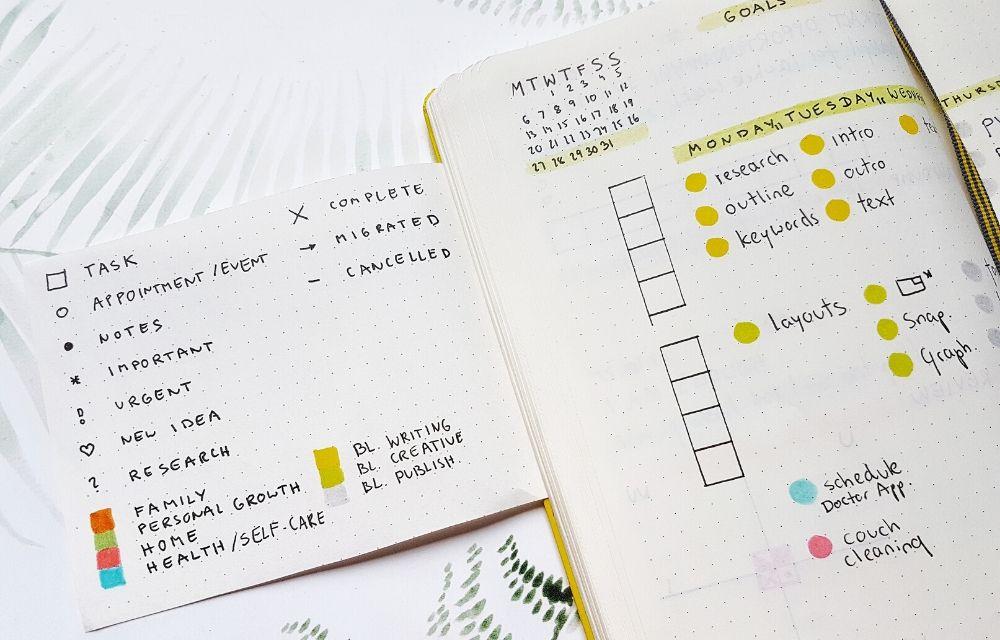 TASK
APPOINTMENT/EVENT
NOTES
IMPORTANT
URGENT
NEW IDEA
RESEARCH
X COMPLETE
→ MIGRATED
– CANCELLED
FAMILY
PERSONAL GROWTH
HOME
HEALTH/SELF-CARE
BL. WRITING
BL. CREATIVE
BL. PUBLISH.
GOALS
M T W T F S S
1 2 3 4 5
6 7 8 9 10 11 12
13 14 15 16 17 18 19
20 21 22 23 24 25 26
27 28 29 30 31
MONDAY, TUESDAY,
research
outline
keywords
intro
outro
text
layouts
*
Snap.
Graph.
schedule
Doctor App.
couch
cleaning